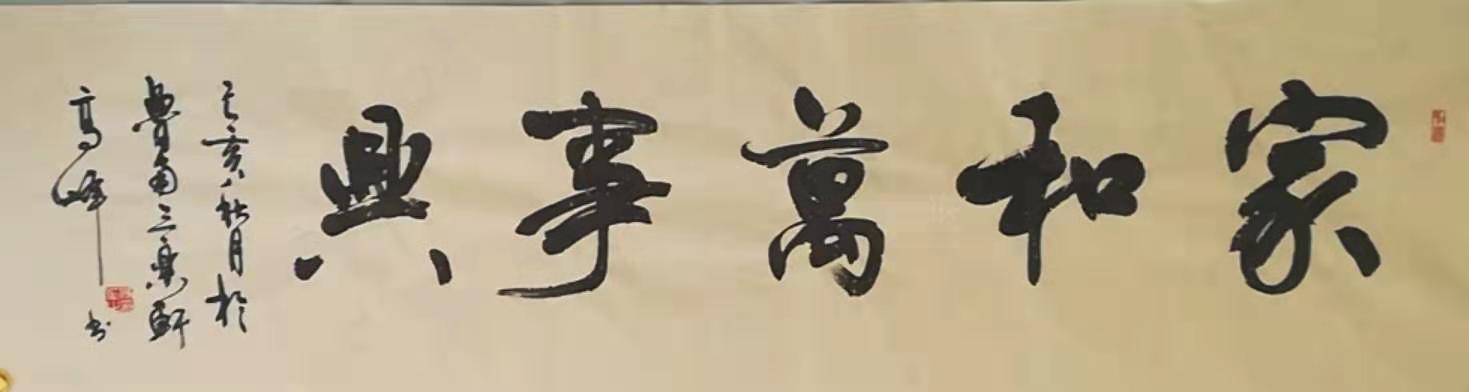 家和萬事興
己亥秋月於
魯南三樂軒
高峰书